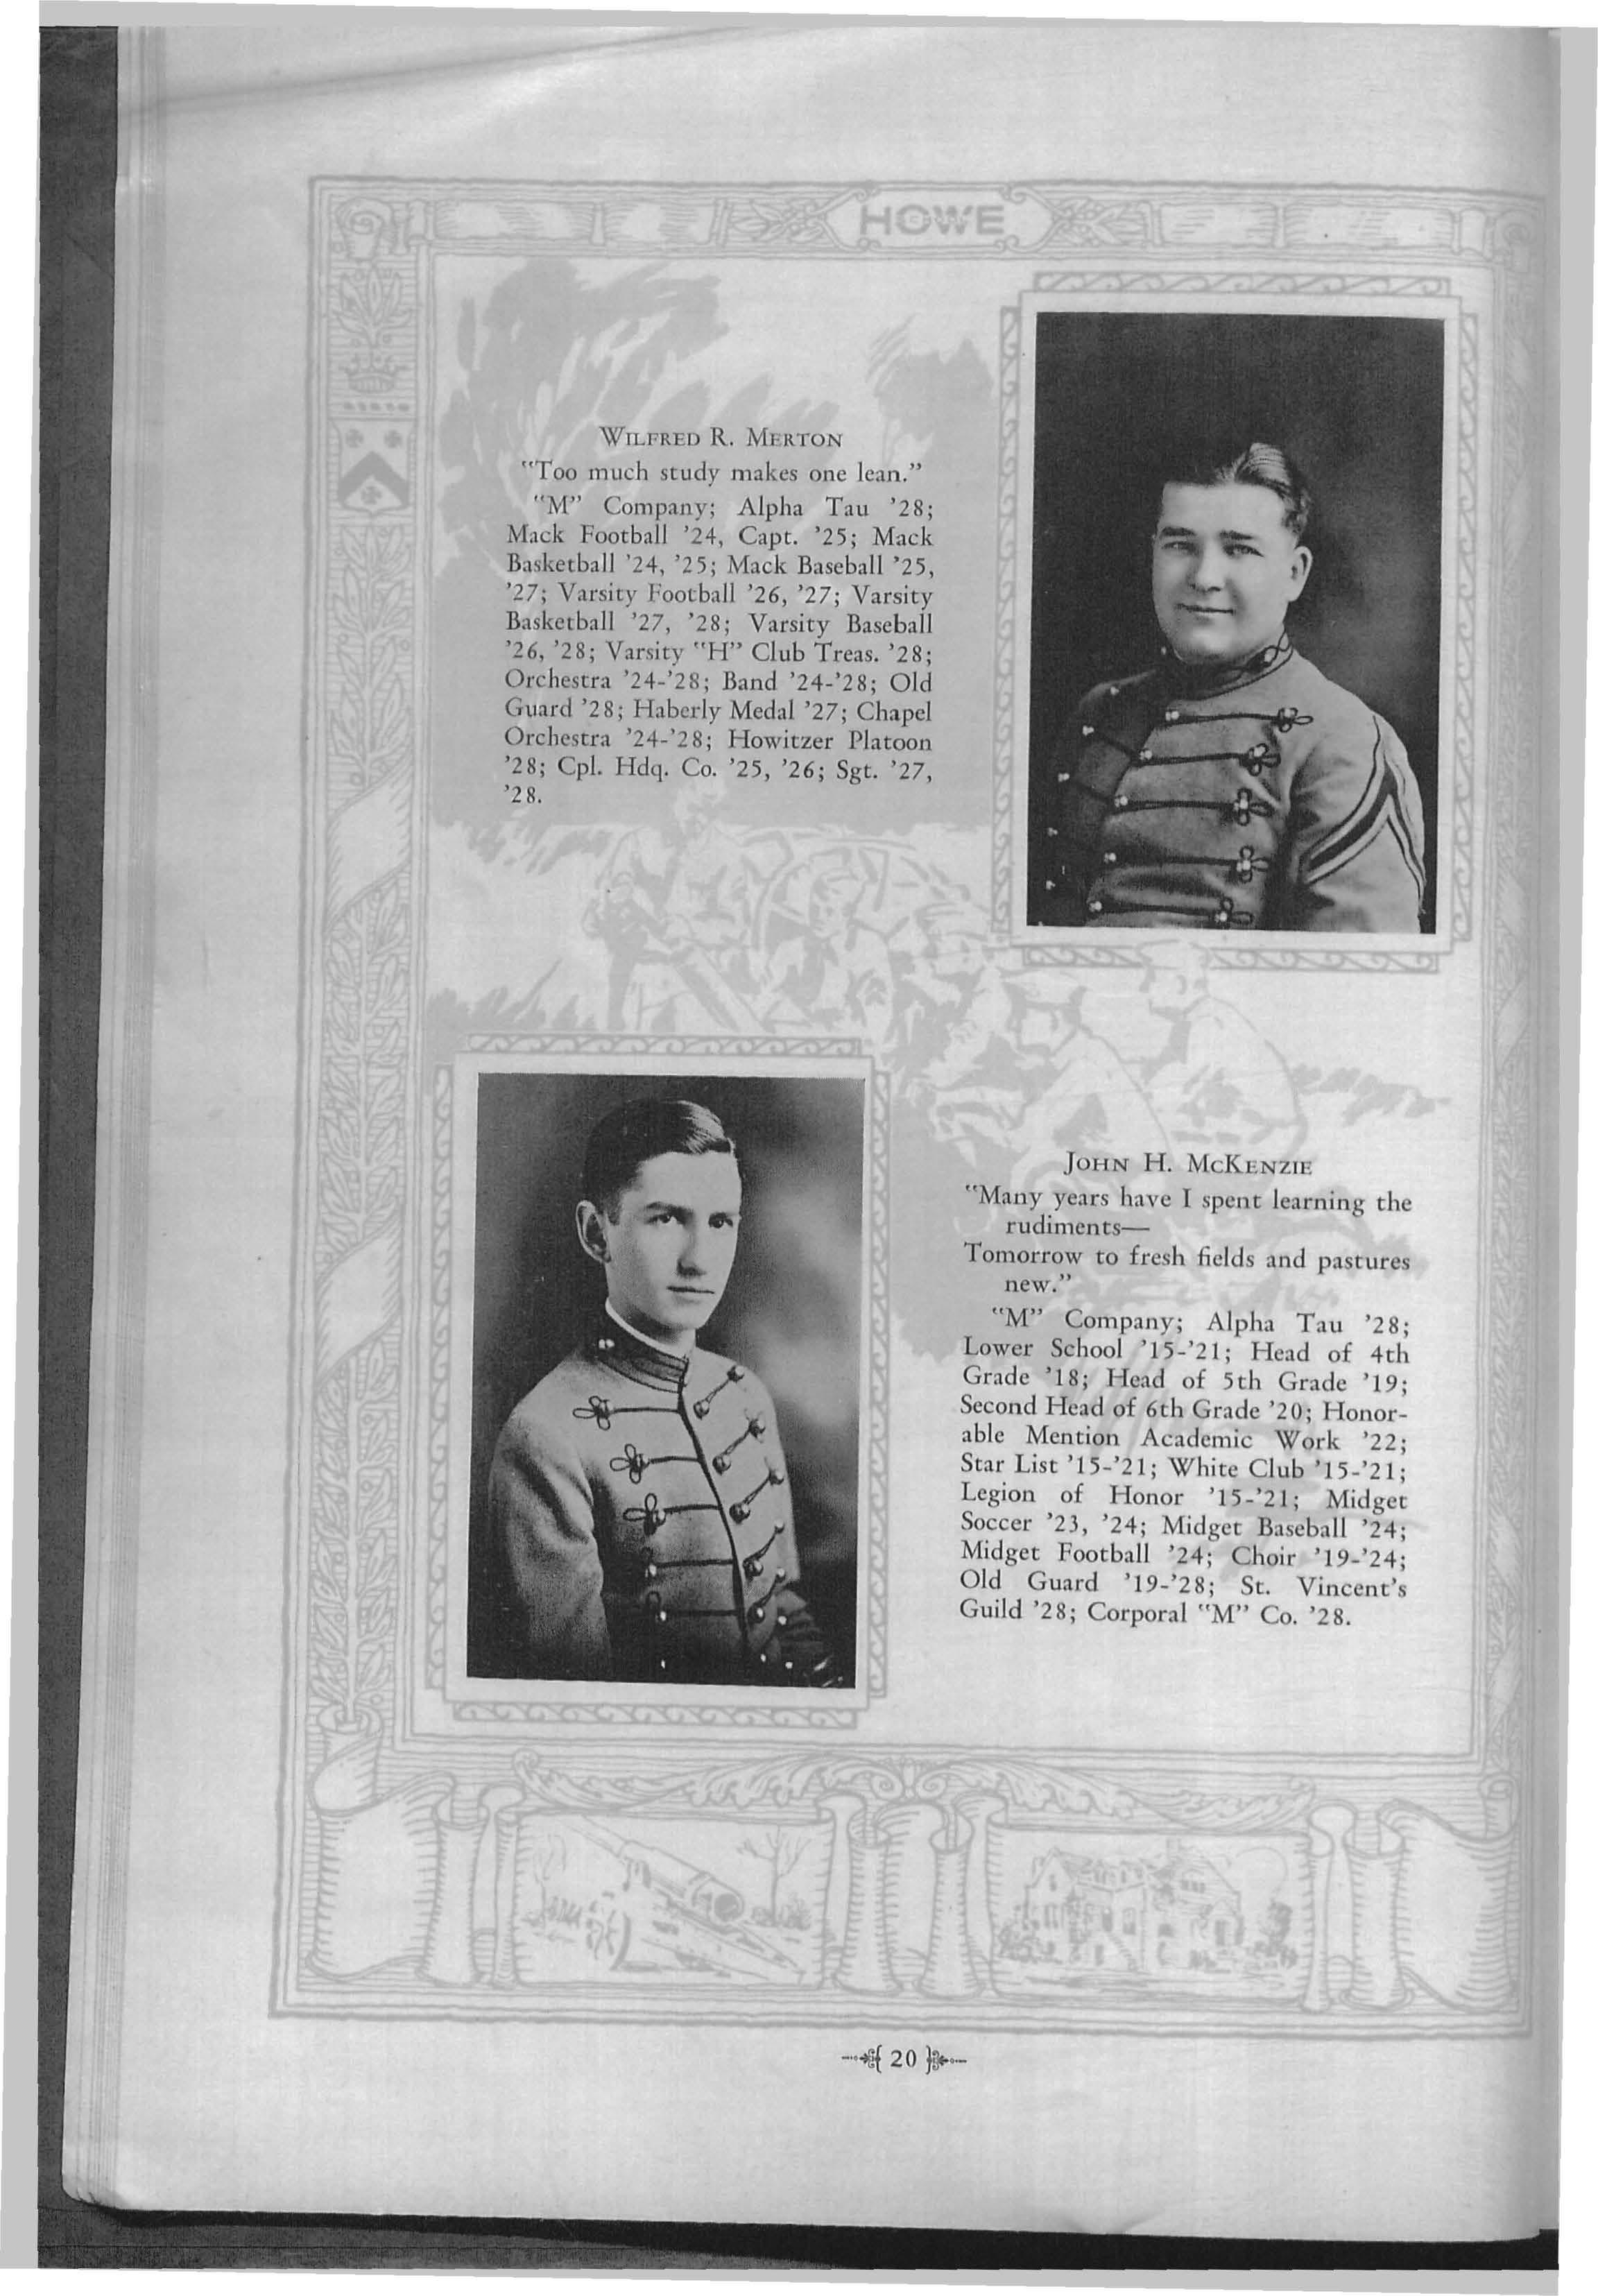 HOWE
WILFRED R. MERTON
"Too much study makes one lean."
"M" Company; Alpha Tau '28;
Mack Football '24, Capt. '25; Mack
Basketball '24, '25; Mack Baseball '25,
'27; Varsity Football '26, '27; Varsity
Basketball '27, '28; Varsity Baseball
'26, '28; Varsity "H" Club Treas. '28;
Orchestra '24-'28; Band '24-'28; Old
Guard '28; Haberly Medal '27; Chapel
Orchestra '24-'28; Howitzer Platoon
'28; Cpl. Hdq. Co. '25, '26; Sgt. '27,
'28.
JOHN H. MCKENZIE
"Many years have I spent learning the
rudiments—
Tomorrow to fresh fields and pastures
new."
"M" Company; Alpha Tau '28;
Lower School '15-'21; Head of 4th
Grade '18; Head of 5th Grade '19;
Second Head of 6th Grade '20; Honor-
able Mention Academic Work '22;
Star List '15-'21; White Club '15-'21;
Legion of Honor '15-'21; Midget
Soccer '23, '24; Midget Baseball '24;
Midget Football '24; Choir '19-'24;
Old Guard '19-'28; St. Vincent's
Guild '28; Corporal "M" Co. '28.
20